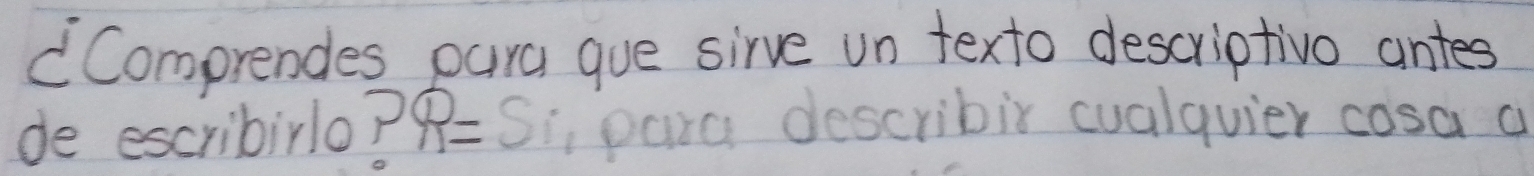 ¿Comprendes para que sirve un texto descriptivo antes
de escribirlo? R= Si, para describir cualquier cosa a